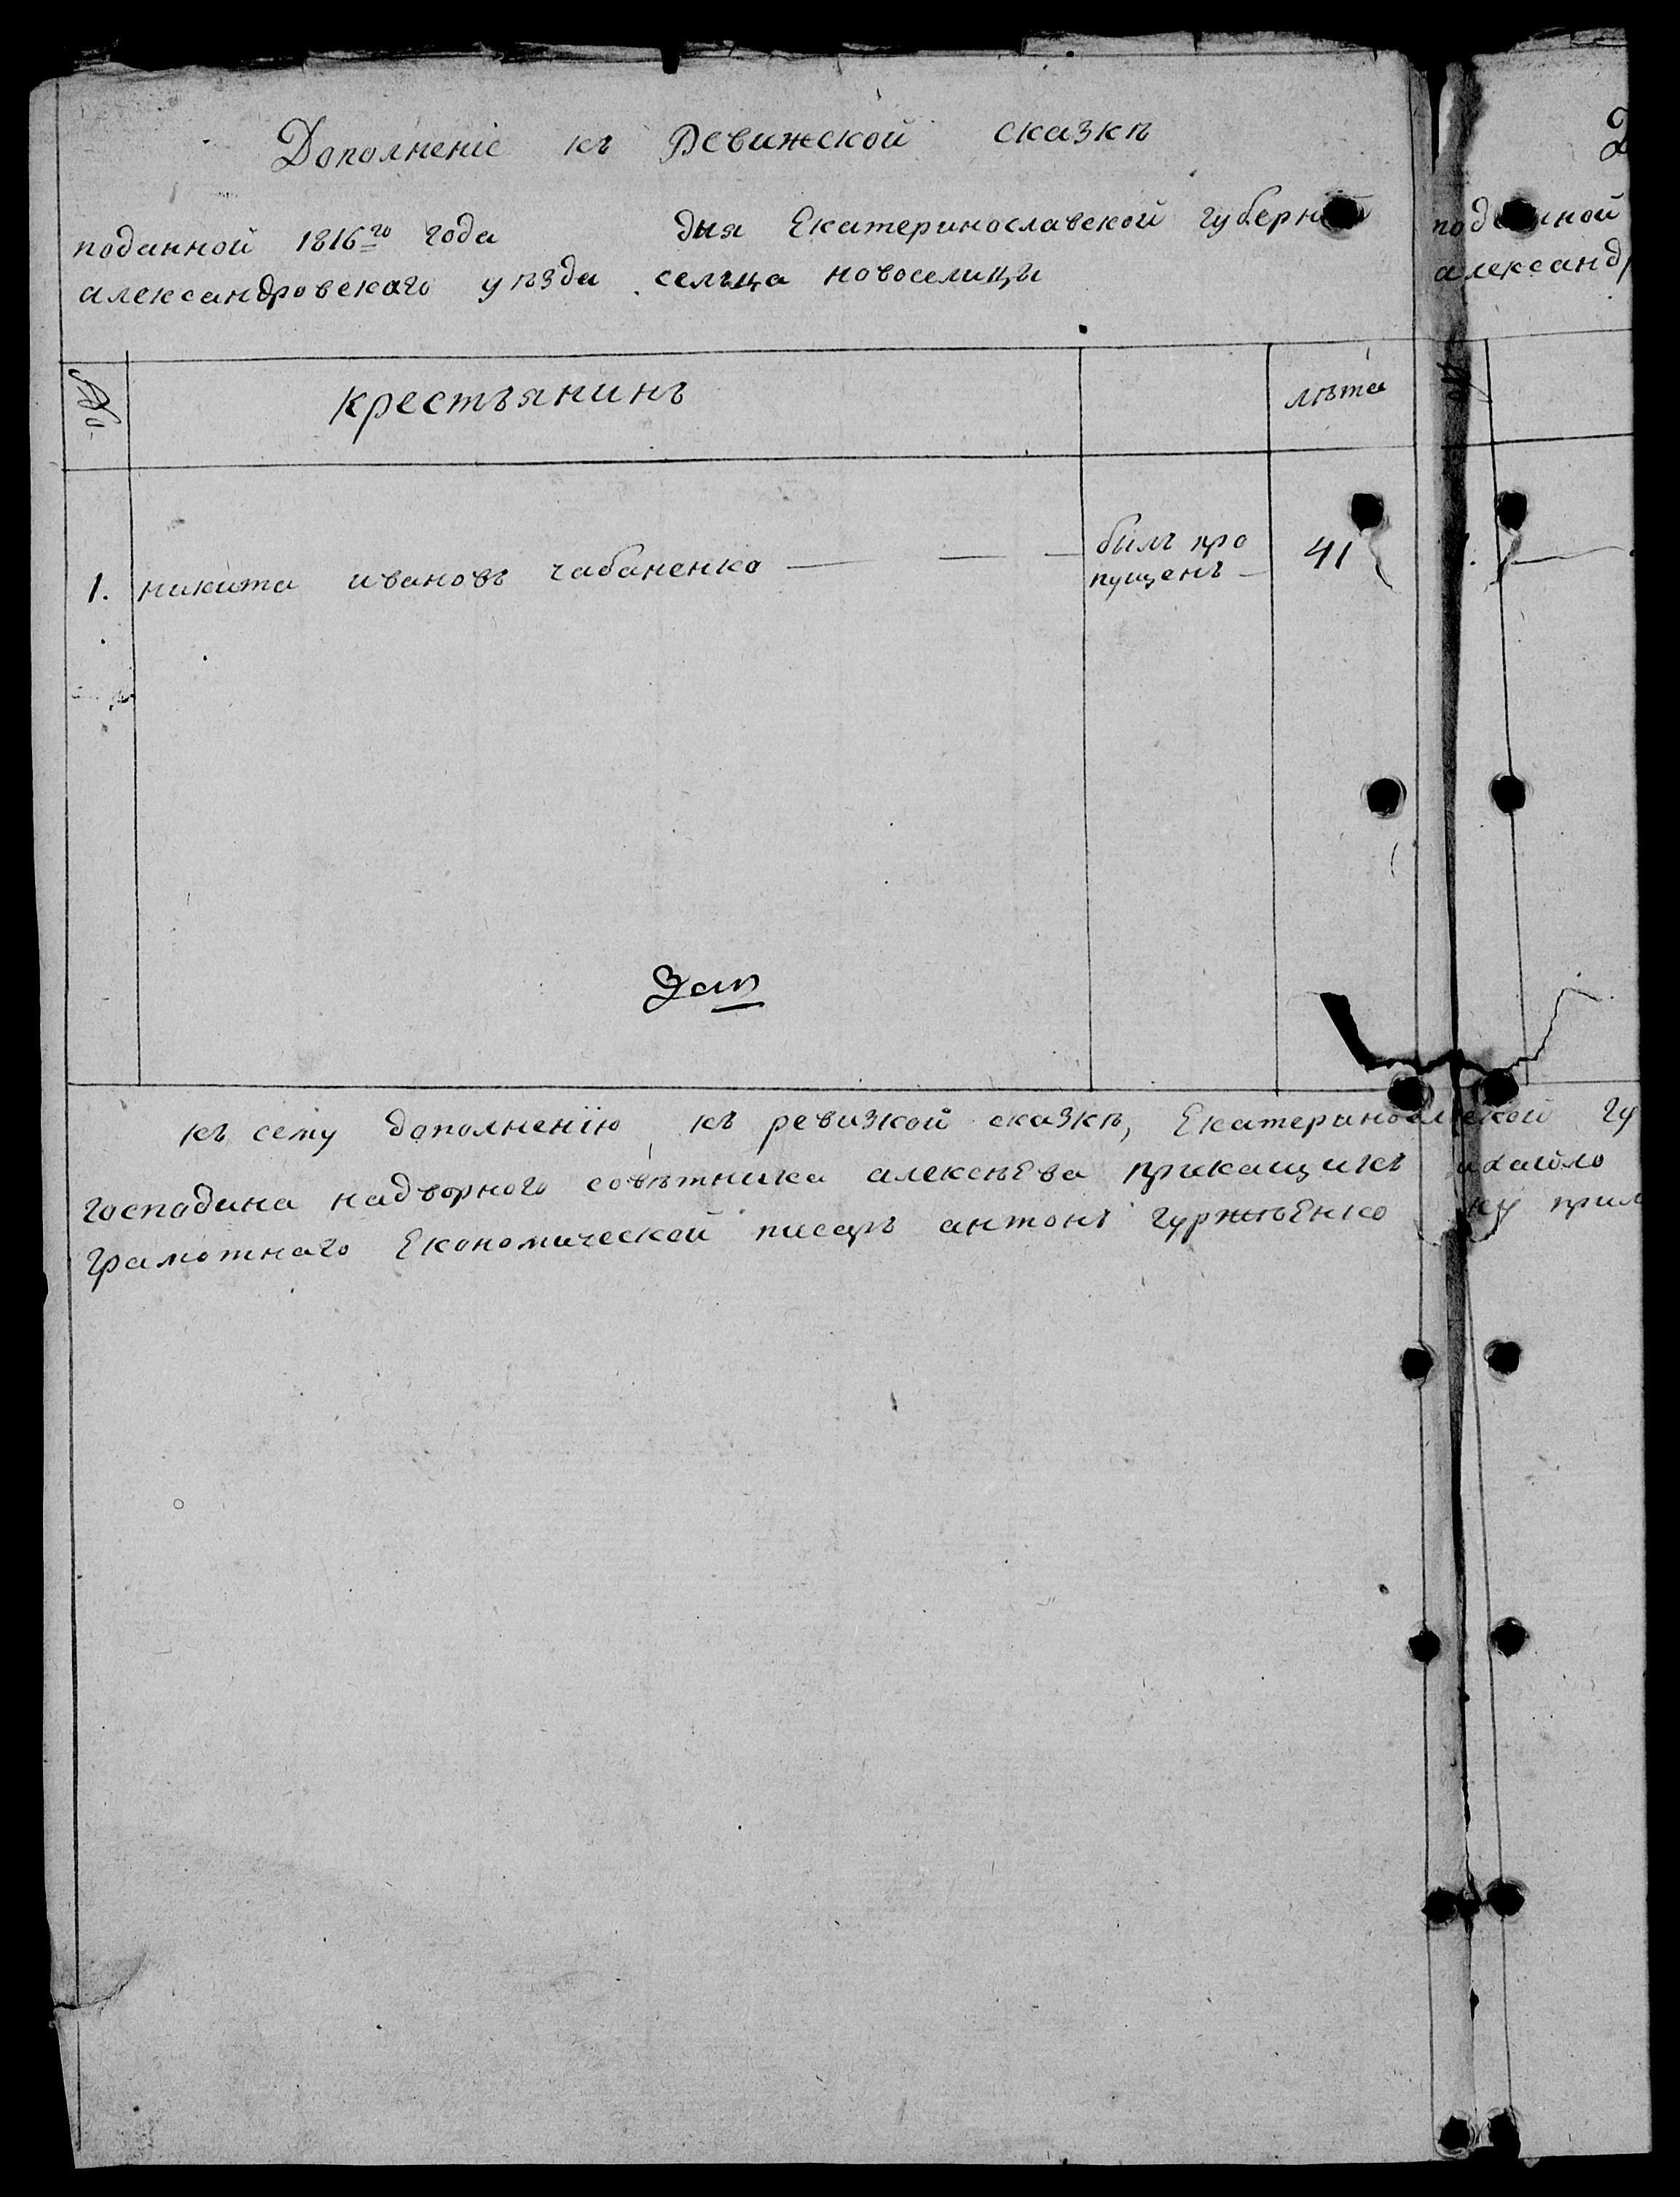 Дополненіе къ Ревижской сказкѣ
поданной 1816го года дня Екатеринославской губерн
александровскаго уѣзда сельца новоселицы
александ
№
крестьянинъ
лѣта
1. никита ивановъ чабаненко — — —
былъ про
пущенъ —
41
къ сему дополненїю къ ревизкой сказкѣ, Екатеринос
господина надворного совѣтника алексѣева прикащикъ
грамотнаго Економической писарь антонъ гуржѣЕнко